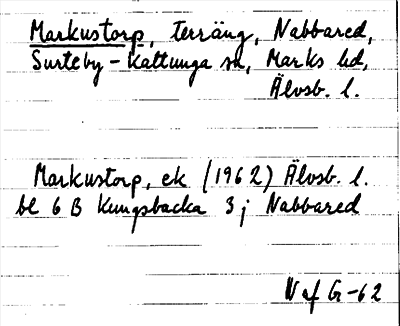 Markustorp, terräng, Nabbared,
Surteby-Kattunga sn, Marks hd,
Älvsb. l.
Markustorp, ek (1962) Älvsb. l.
bl 6 B Kungsbacka 3 j Nabbared
N af G-62